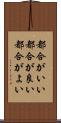 都合がいい
都合が良い
都合がよい